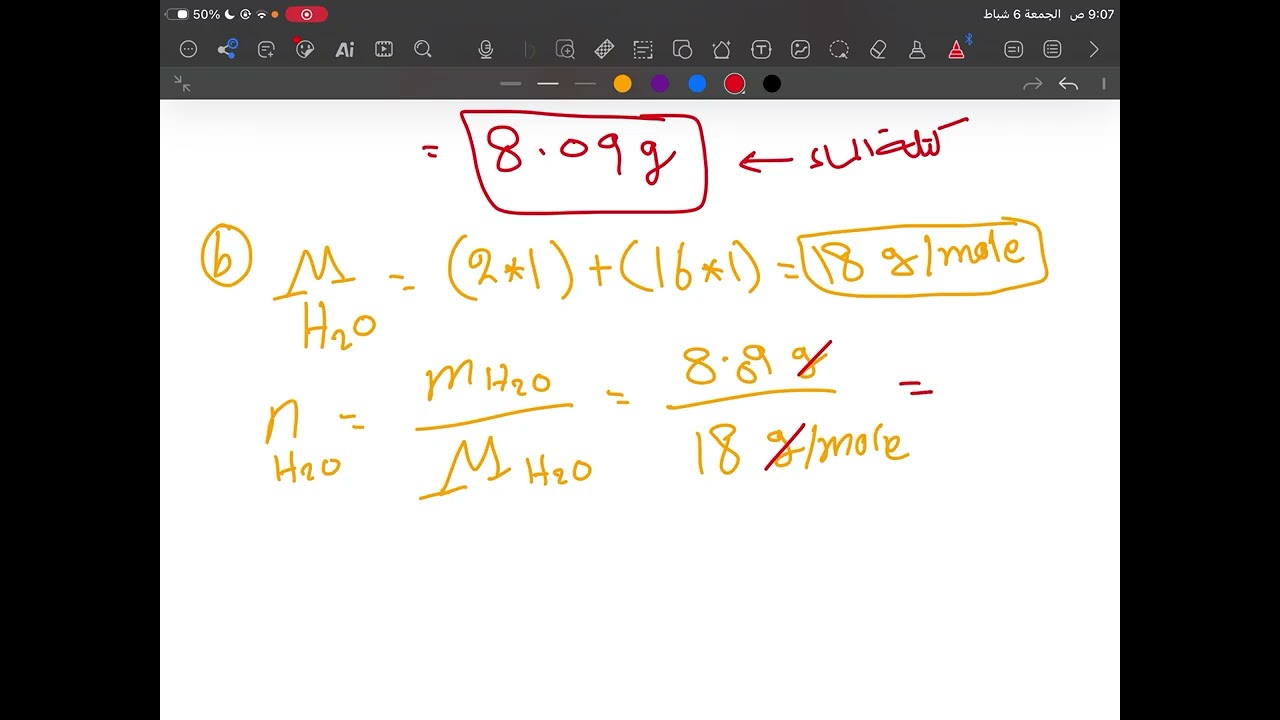 50%
9:07 ص الجمعة 6 شباط
Ai
T
= 8.09 g ← كتلة الماء
b M H₂O = (2*1) + (16*1) = 18 g/mole
n H₂O = m H₂O / M H₂O = 8.09 g / 18 g/mole =